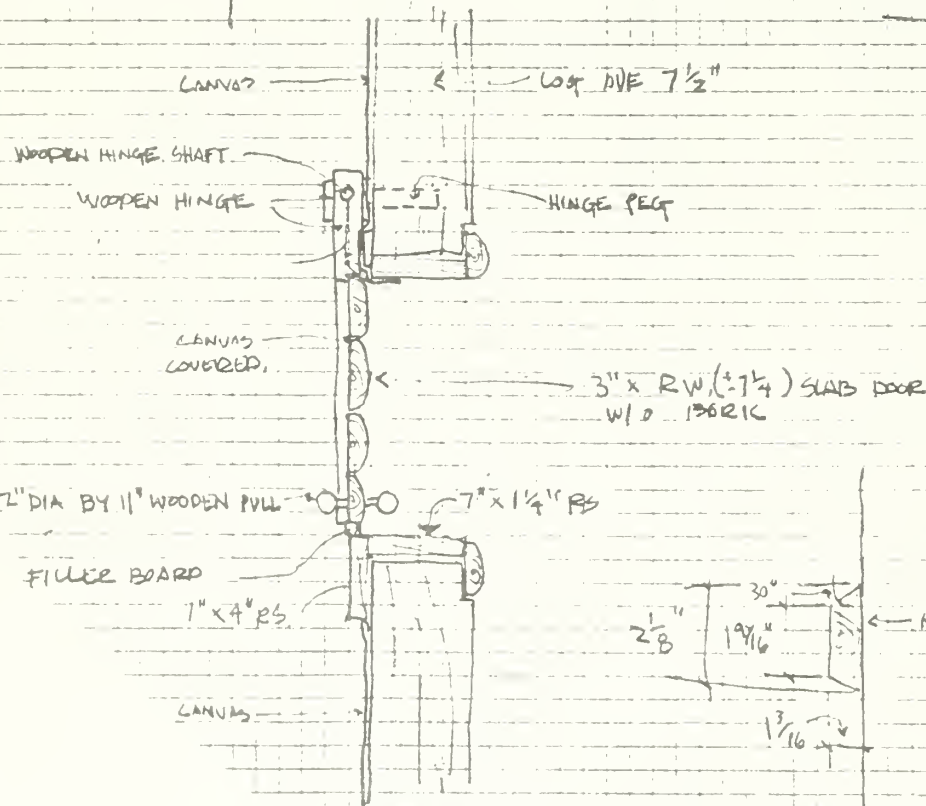 CANVAS
LOG AVE 7 1/2"
WOODEN HINGE SHAFT
WOODEN HINGE
HINGE PEG
CANVAS
COVERED.
3" x RW, (± 7 1/4) SLAB DOOR
W/O BARK
2" DIA BY 11" WOODEN PULL
7" x 1 1/4" RS
FILLER BOARD
1" x 4" RS
30°
2 1/8"
1 9/16"
CANVAS
1 3/16